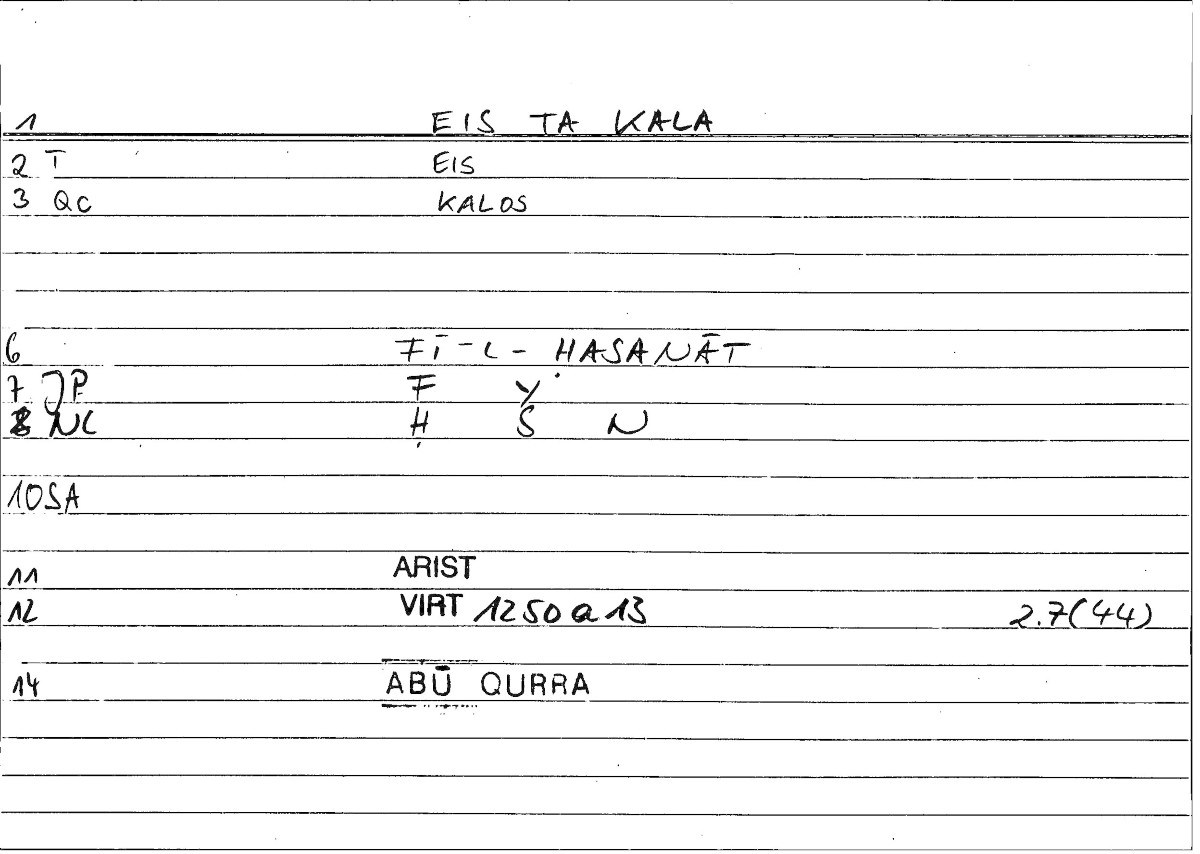 1 EIS TA KALA
2 T EIS
3 QC KALOS
6 FĪ-L-ḤASANĀT
7 JP F Y
8 NC Ḥ S N
10 SA
11 ARIST
12 VIRT 1250a13 2.7(44)
14 ABŪ QURRA